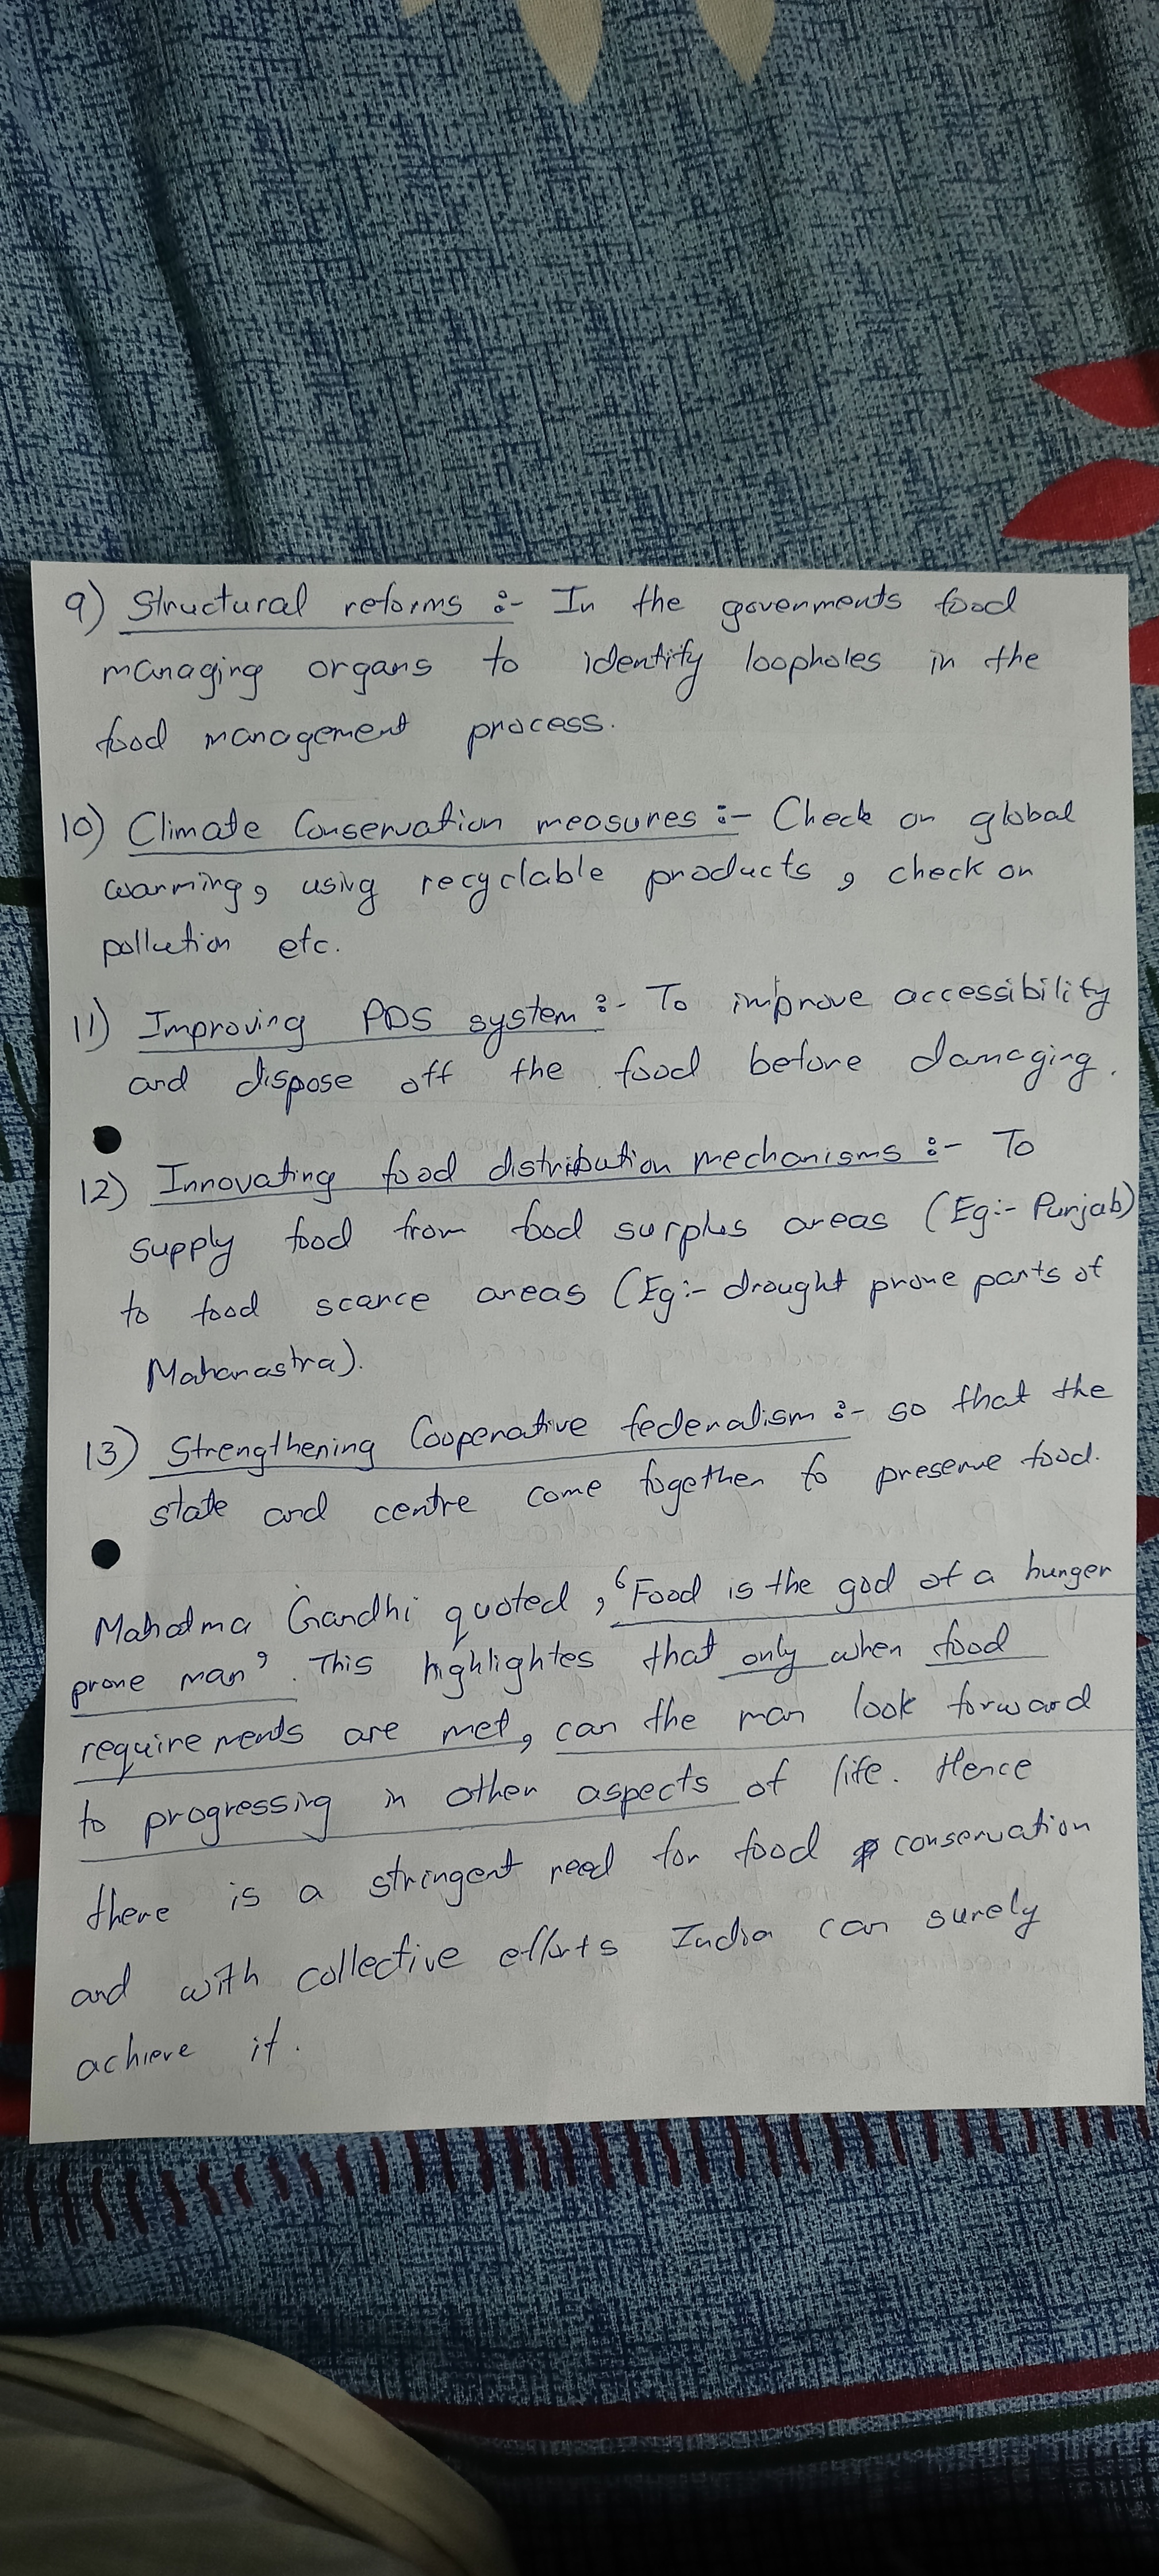 9) Structural reforms :- In the govenments food
managing organs to identify loopholes in the
food management process.
10) Climate Conservation measures :- Check on global
warming, using recyclable products, check on
pollution etc.
11) Improving PDS system :- To improve accessibility
and dispose off the food before damaging.
12) Innovating food distribution mechanisms :- To
supply food from food surplus areas (Eg:- Punjab)
to food scarce areas (Eg:- drought prone parts of
Maharastra).
13) Strengthening Cooperative federalism :- so that the
state and centre come together to preserve food.
Mahatma Gandhi quoted, 'Food is the god of a hunger
prone man'. This highlightes that only when food
requirements are met, can the man look forward
to progressing in other aspects of life. Hence
there is a stringent need for food conservation
and with collective efforts India can surely
achieve it.